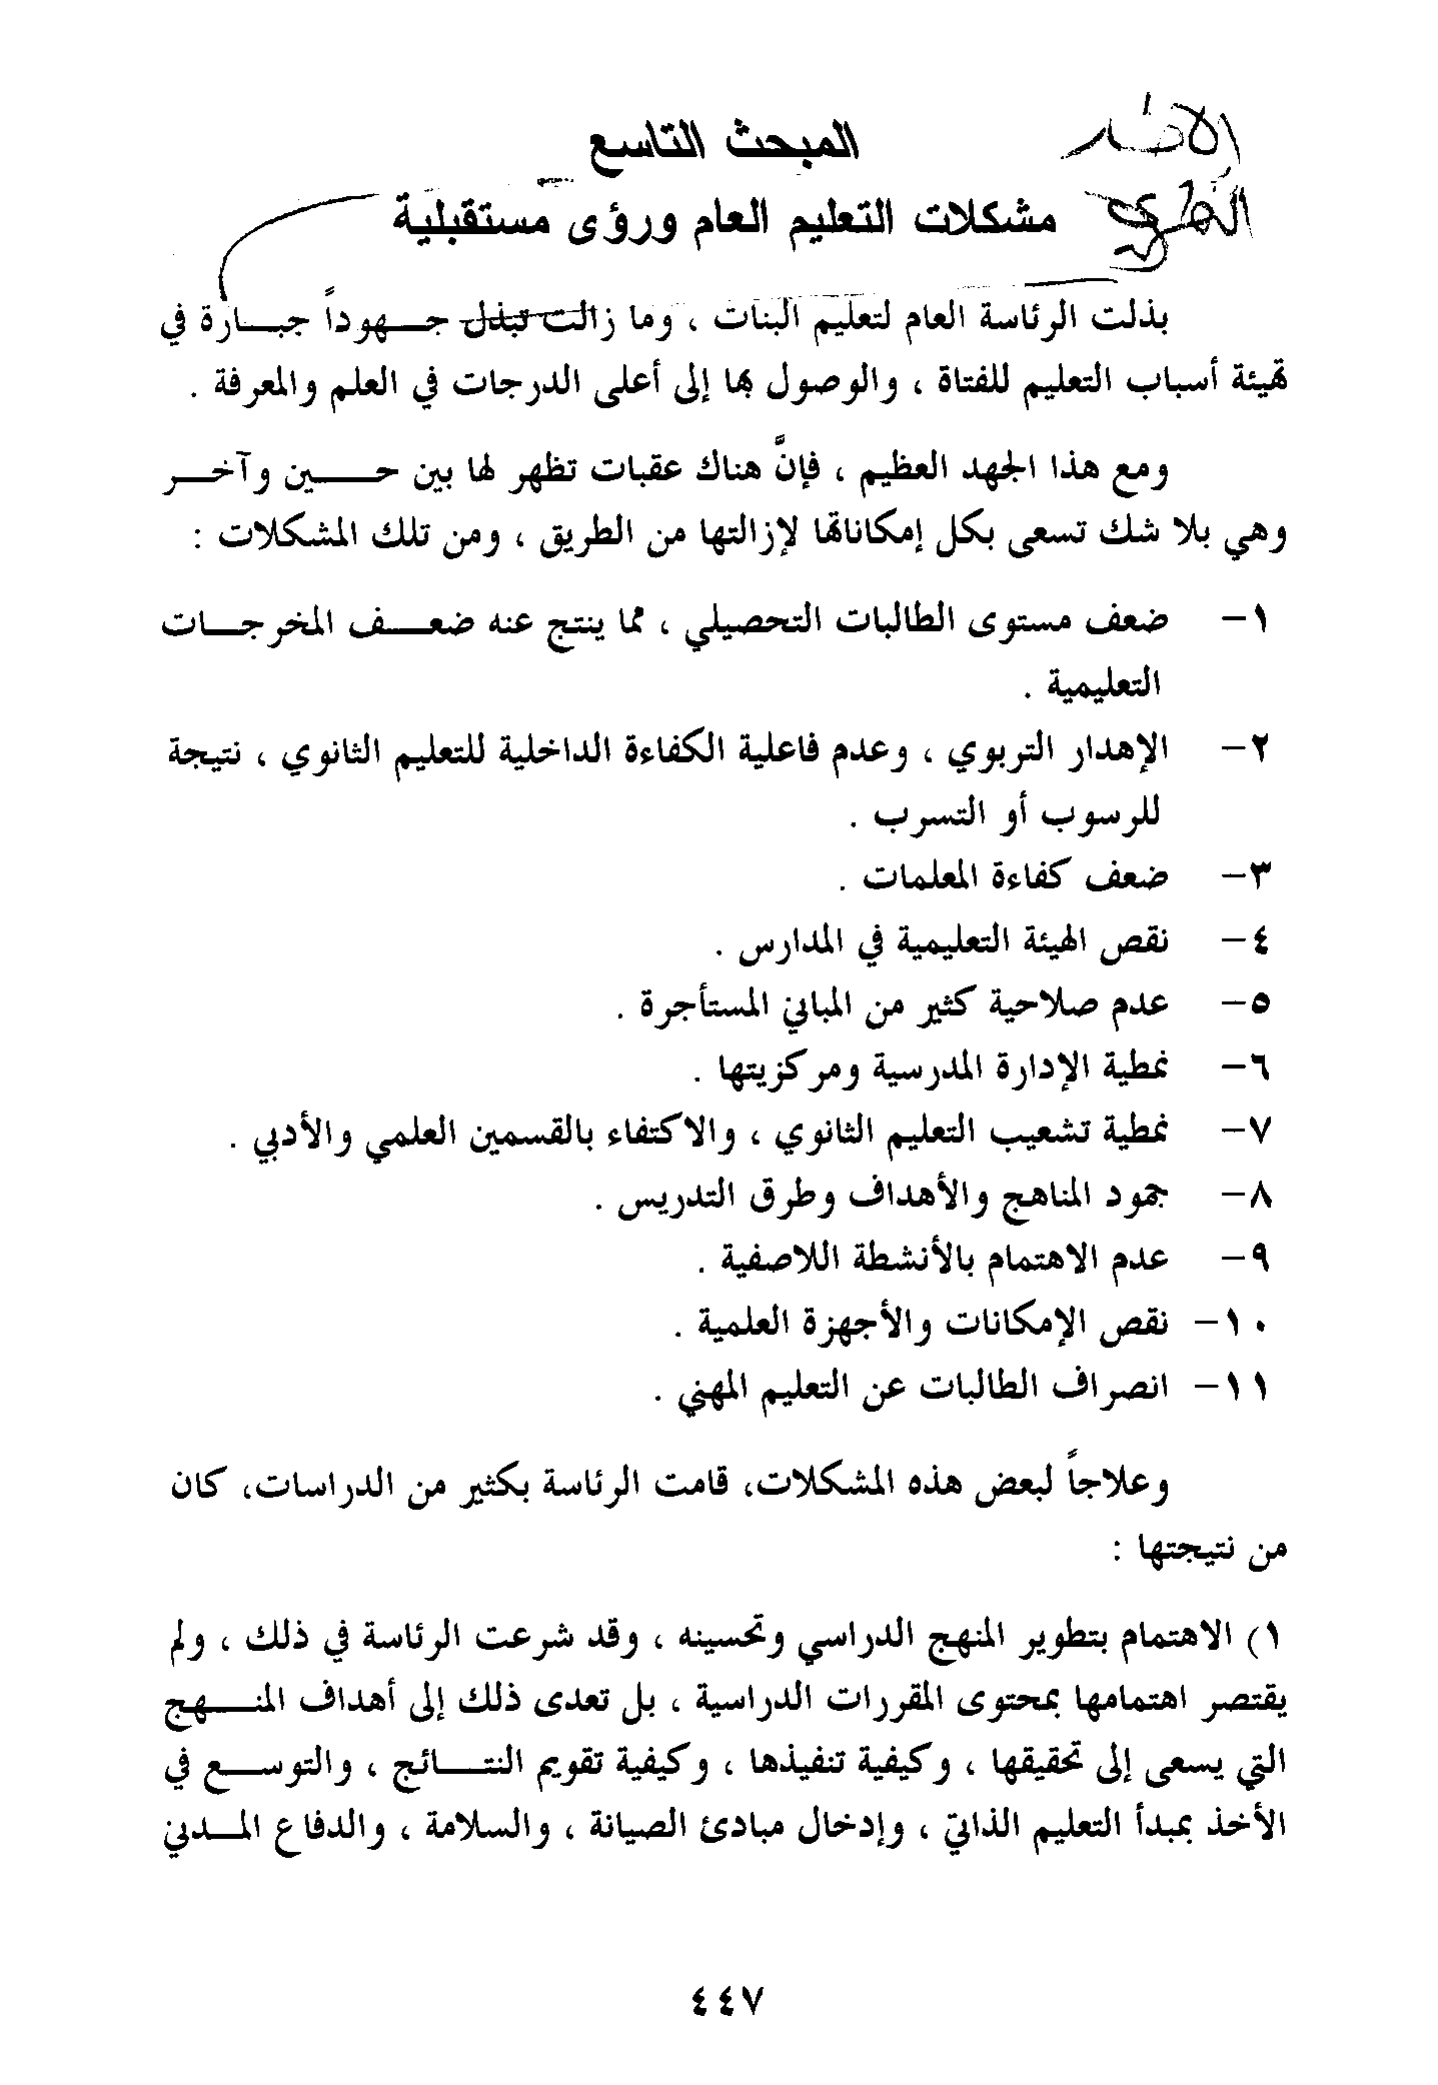 المبحث التاسع
مشكلات التعليم العام ورؤى مستقبلية
بذلت الرئاسة العام لتعليم البنات ، وما زالت تبذل جهوداً جبارة في
تهيئة أسباب التعليم للفتاة ، والوصول بها إلى أعلى الدرجات في العلم والمعرفة .
ومع هذا الجهد العظيم ، فإنَّ هناك عقبات تظهر لها بين حين وآخر
وهي بلا شك تسعى بكل إمكاناتها لإزالتها من الطريق ، ومن تلك المشكلات :
١- ضعف مستوى الطالبات التحصيلي ، مما ينتج عنه ضعف المخرجات
التعليمية .
٢- الإهدار التربوي ، وعدم فاعلية الكفاءة الداخلية للتعليم الثانوي ، نتيجة
للرسوب أو التسرب .
٣- ضعف كفاءة المعلمات .
٤- نقص الهيئة التعليمية في المدارس .
٥- عدم صلاحية كثير من المباني المستأجرة .
٦- نمطية الإدارة المدرسية ومركزيتها .
٧- نمطية تشعيب التعليم الثانوي ، والاكتفاء بالقسمين العلمي والأدبي .
٨- جمود المناهج والأهداف وطرق التدريس .
٩- عدم الاهتمام بالأنشطة اللاصفية .
١٠- نقص الإمكانات والأجهزة العلمية .
١١- انصراف الطالبات عن التعليم المهني .
وعلاجاً لبعض هذه المشكلات، قامت الرئاسة بكثير من الدراسات، كان
من نتيجتها :
١) الاهتمام بتطوير المنهج الدراسي وتحسينه ، وقد شرعت الرئاسة في ذلك ، ولم
يقتصر اهتمامها بمحتوى المقررات الدراسية ، بل تعدى ذلك إلى أهداف المنهج
التي يسعى إلى تحقيقها ، وكيفية تنفيذها ، وكيفية تقويم النتائج ، والتوسع في
الأخذ بمبدأ التعليم الذاتي ، وإدخال مبادئ الصيانة ، والسلامة ، والدفاع المدني
٤٤٧